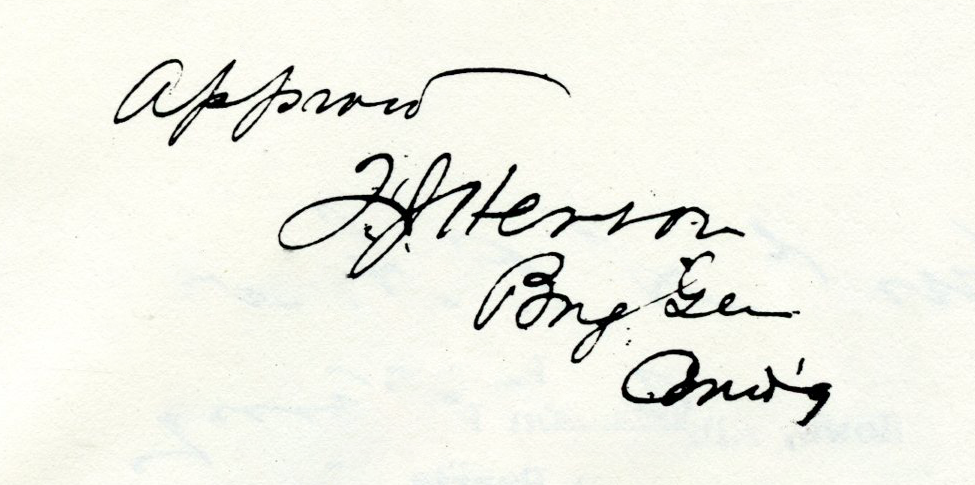 Approved
F. J. Herron
Brig Gen
Comd'g